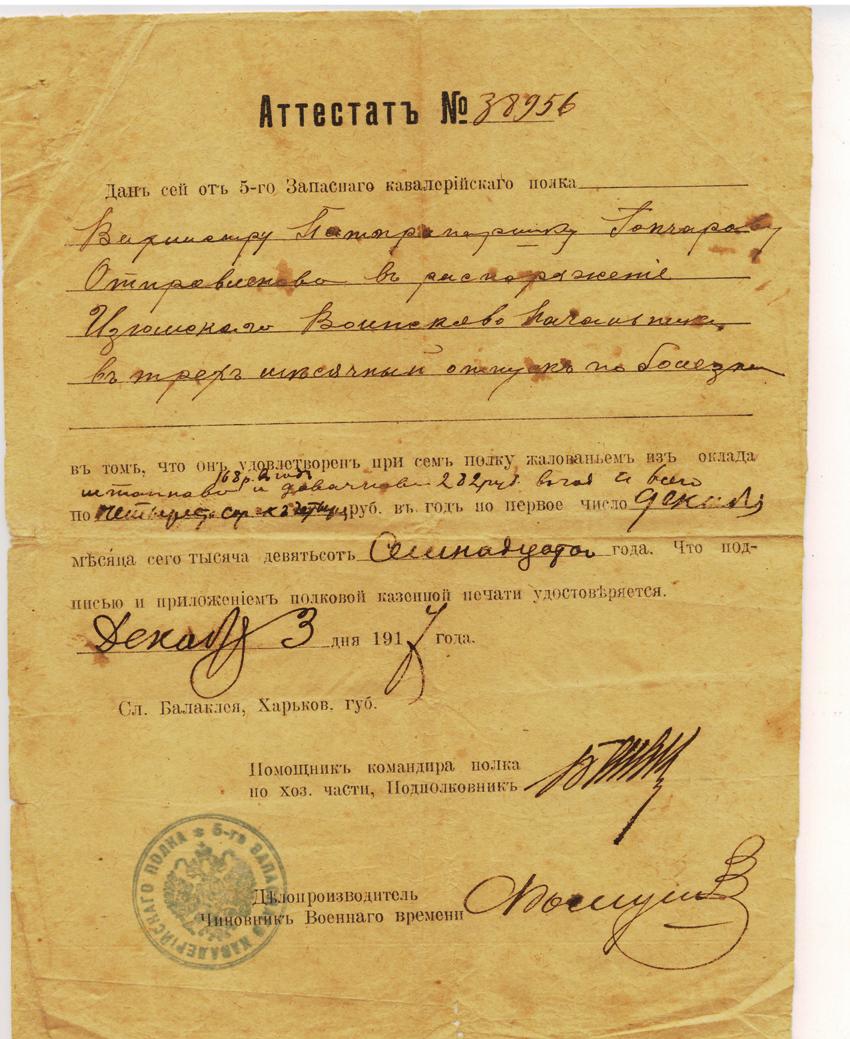 Аттестатъ № 38956
Данъ сей отъ 5-го Запаснаго кавалерійскаго полка
Вахмистру Гончарову
Отправленово въ распоряженіе
Изюмскаго Воинсково Начальника
въ трехъ мѣсячный отпускъ по болезни
въ томъ, что онъ удовлетворенъ при семъ полку жалованьемъ изъ оклада
168 р. в год
и 282 руб. в год а всего
по руб. въ годъ по первое число Декабря
мѣсяца сего тысяча девятьсотъ Семнадцатого года. Что под-
писью и приложеніемъ полковой казенной печати удостовѣряется.
Декабря 3 дня 1917 года.
Сл. Балаклея, Харьков. губ.
Помощникъ командира полка
по хоз. части, Подполковникъ
Дѣлопроизводитель
Чиновникъ Военнаго времени
5-го ЗАПАСНАГО КАВАЛЕРІЙСКАГО ПОЛКА